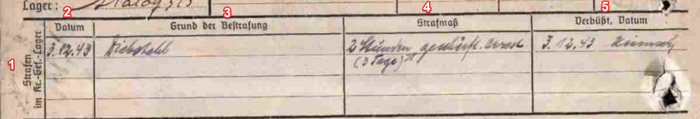 Lager:
2 3 4 5
Datum Grund der Bestrafung Strafmaß Verbüßt, Datum
1 Strafen im Kr.-Gef.-Lager
3.12.43 Diebstahl 2 Stunden geschärft. Arrest 3.12.43
(3 Tage)